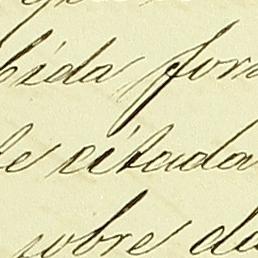 bida for
te citada
sobre da